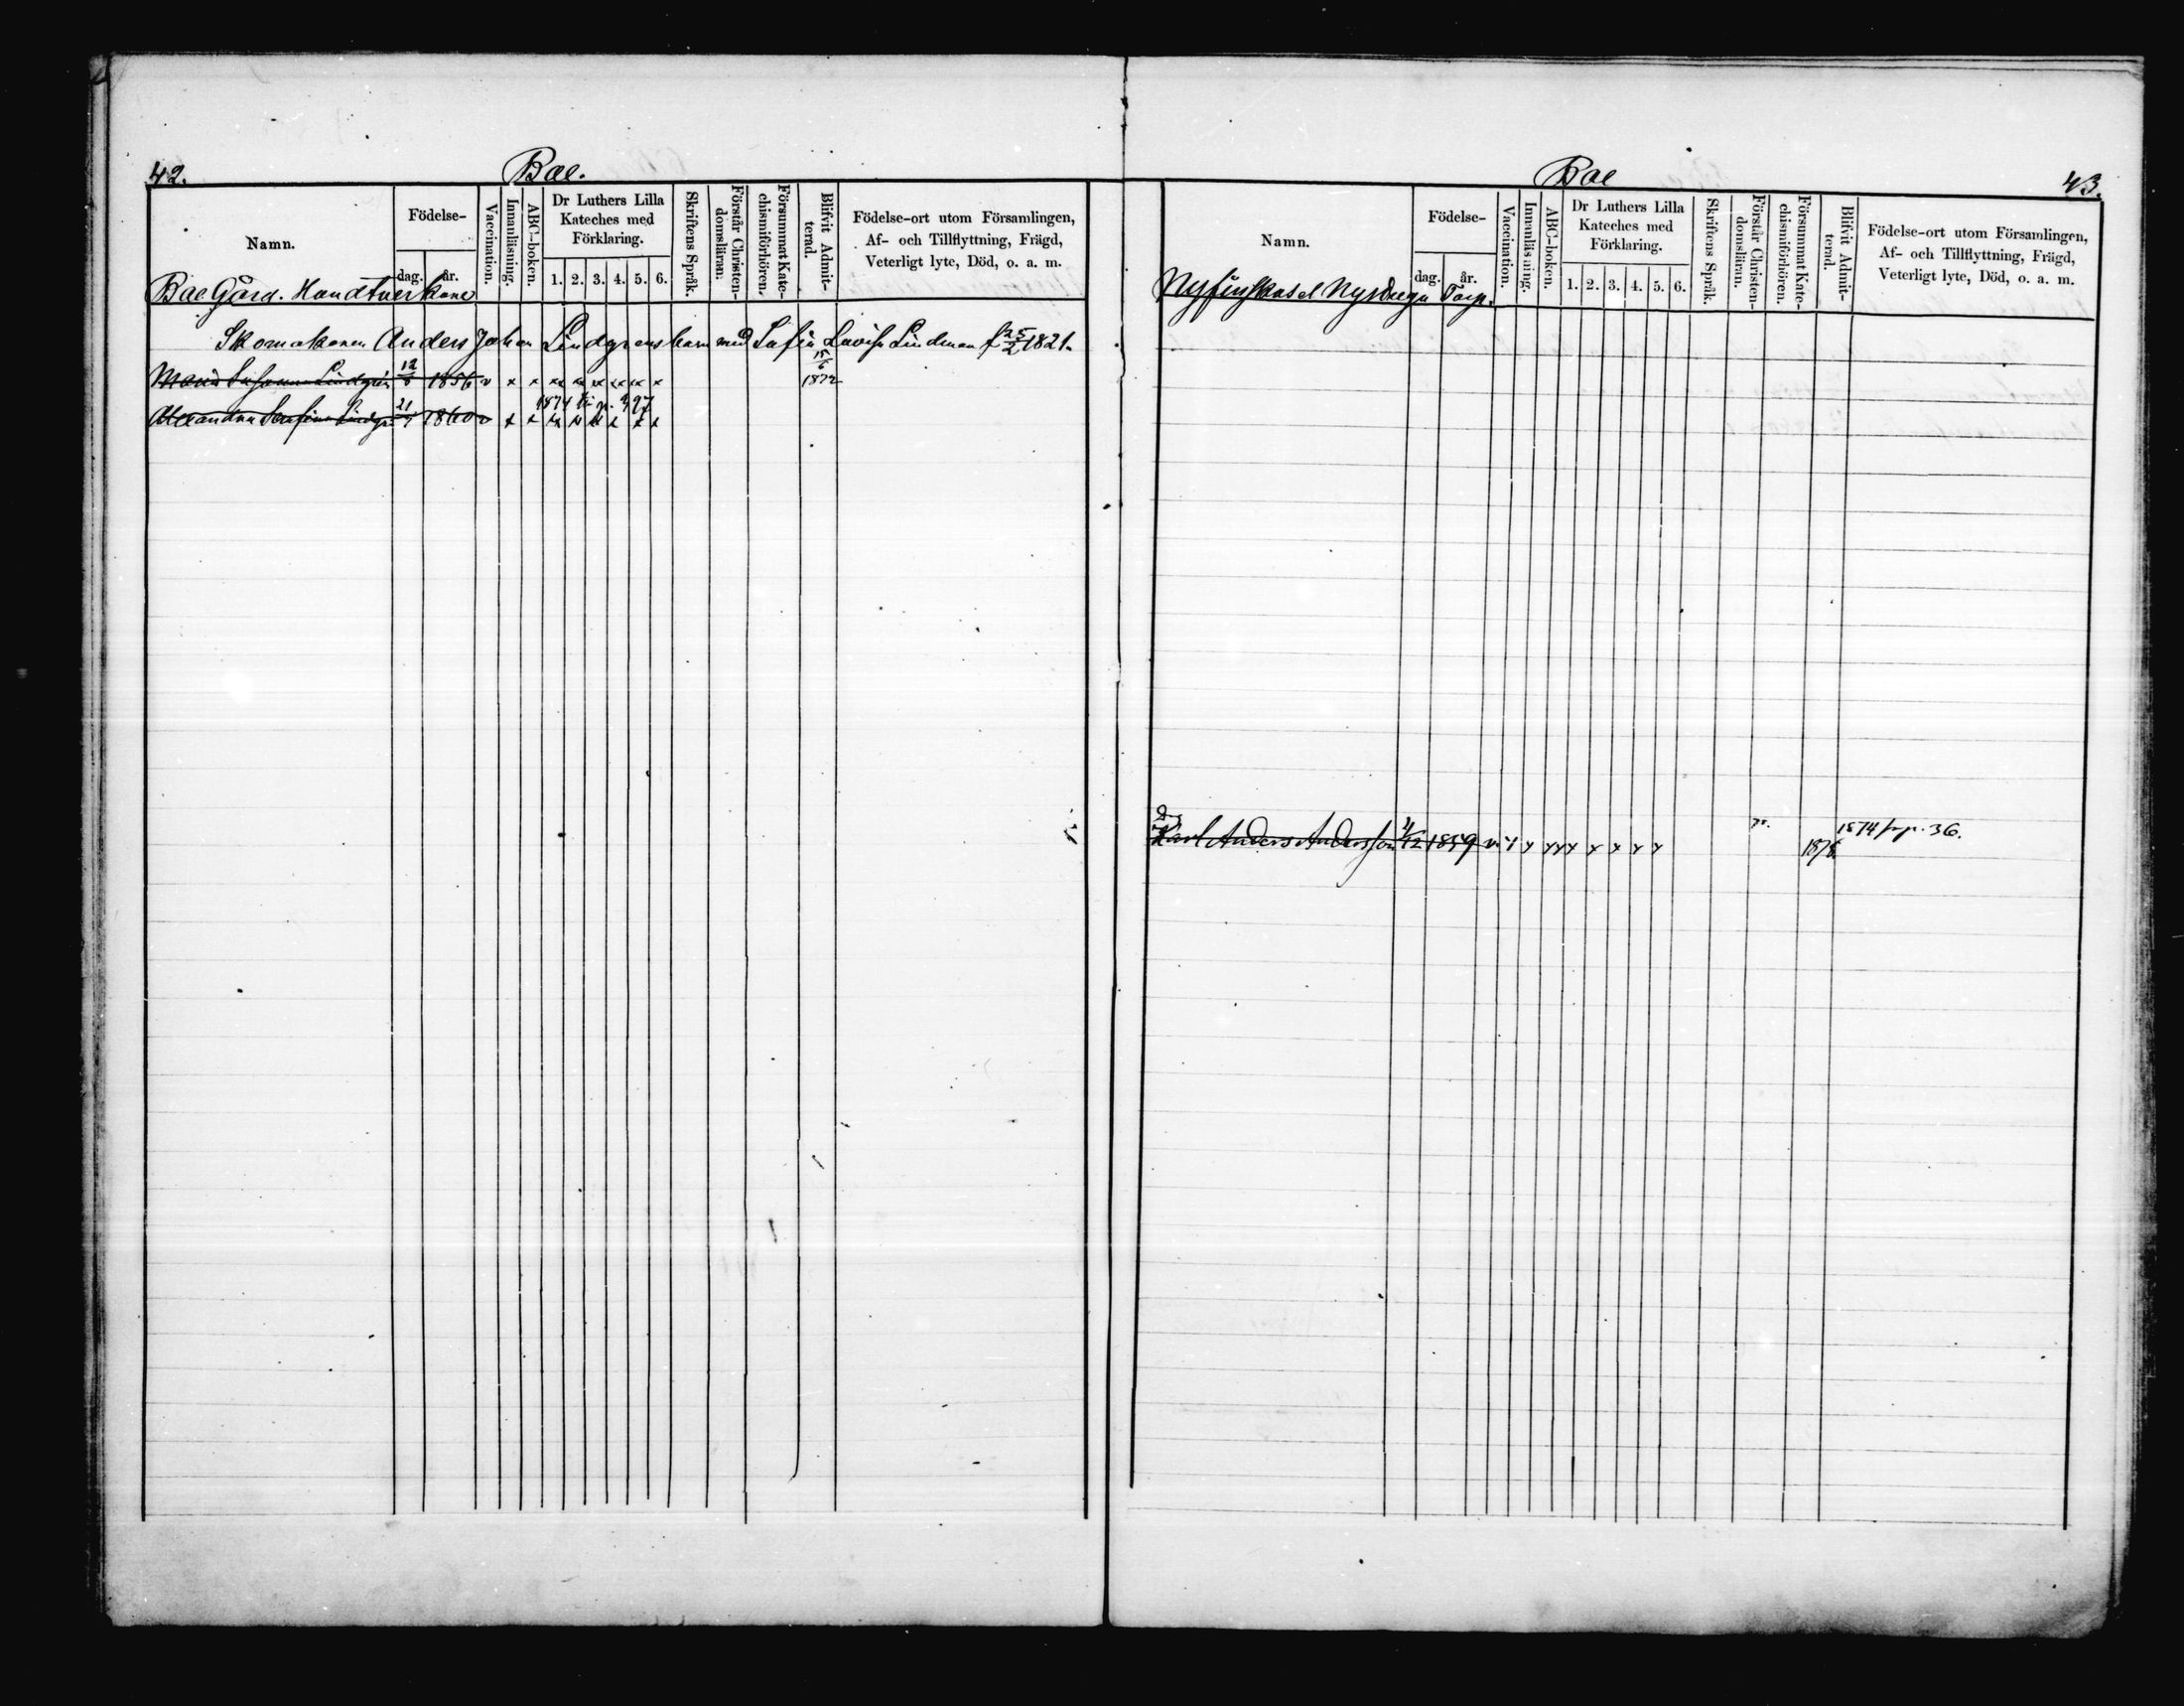 42.
Bae.
Namn.
Födelse-
dag.
år.
Vaccination.
Innanläsning.
ABC-boken.
Dr Luthers Lilla
Kateches med
Förklaring.
1. 2. 3. 4. 5. 6.
Skriftens Språk.
Förstår Christen-
domsläran.
Försummat Kate-
chismiförhören.
Blifvit Admit-
terad.
Födelse-ort utom Församlingen,
Af- och Tillflyttning, Frägd,
Veterligt lyte, Död, o. a. m.
Bae Gård. Handtverkare
Skomakaren Anders Johan Lindgrens barn med Sofia Lovisa Lindman f 25/2 1821.
Maria Susanna Lindgrén 12/5 1856 v x x xx xx xx xx x x 15/6 1872
1874 till p. 497
Alexandra Serafina Lindgr 21 1860 v x x xx x x x x x
Bae
43.
Namn.
Födelse-
dag.
år.
Vaccination.
Innanläsning.
ABC-boken.
Dr Luthers Lilla
Kateches med
Förklaring.
1. 2. 3. 4. 5. 6.
Skriftens Språk.
Förstår Christen-
domsläran.
Försummat Kate-
chismiförhören.
Blifvit Admit-
terad.
Födelse-ort utom Församlingen,
Af- och Tillflyttning, Frägd,
Veterligt lyte, Död, o. a. m.
Torp.
Karl Anders Andersson 4/12 1859 v x x xxx x x x x 1876 1874 pag. 36.